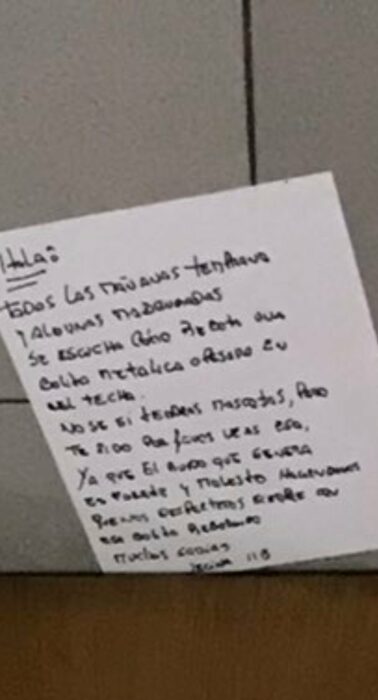 Hola:
TODOS LAS MAÑANAS TEMPRANO
Y ALGUNAS MADRUGADAS
SE ESCUCHA CÓMO REBOTA UNA
BOLITA METALICA O PESADA EN
EL TECHO.
NO SE SI TENDRAS MASCOTAS, PERO
TE PIDO POR FAVOR VEAS ESO,
YA QUE EL RUIDO QUE GENERA
ES FUERTE Y MOLESTO
QUE NOS DESPIERTA SIEMPRE CON
ESA BOLITA REBOTANDO
MUCHAS GRACIAS
11B